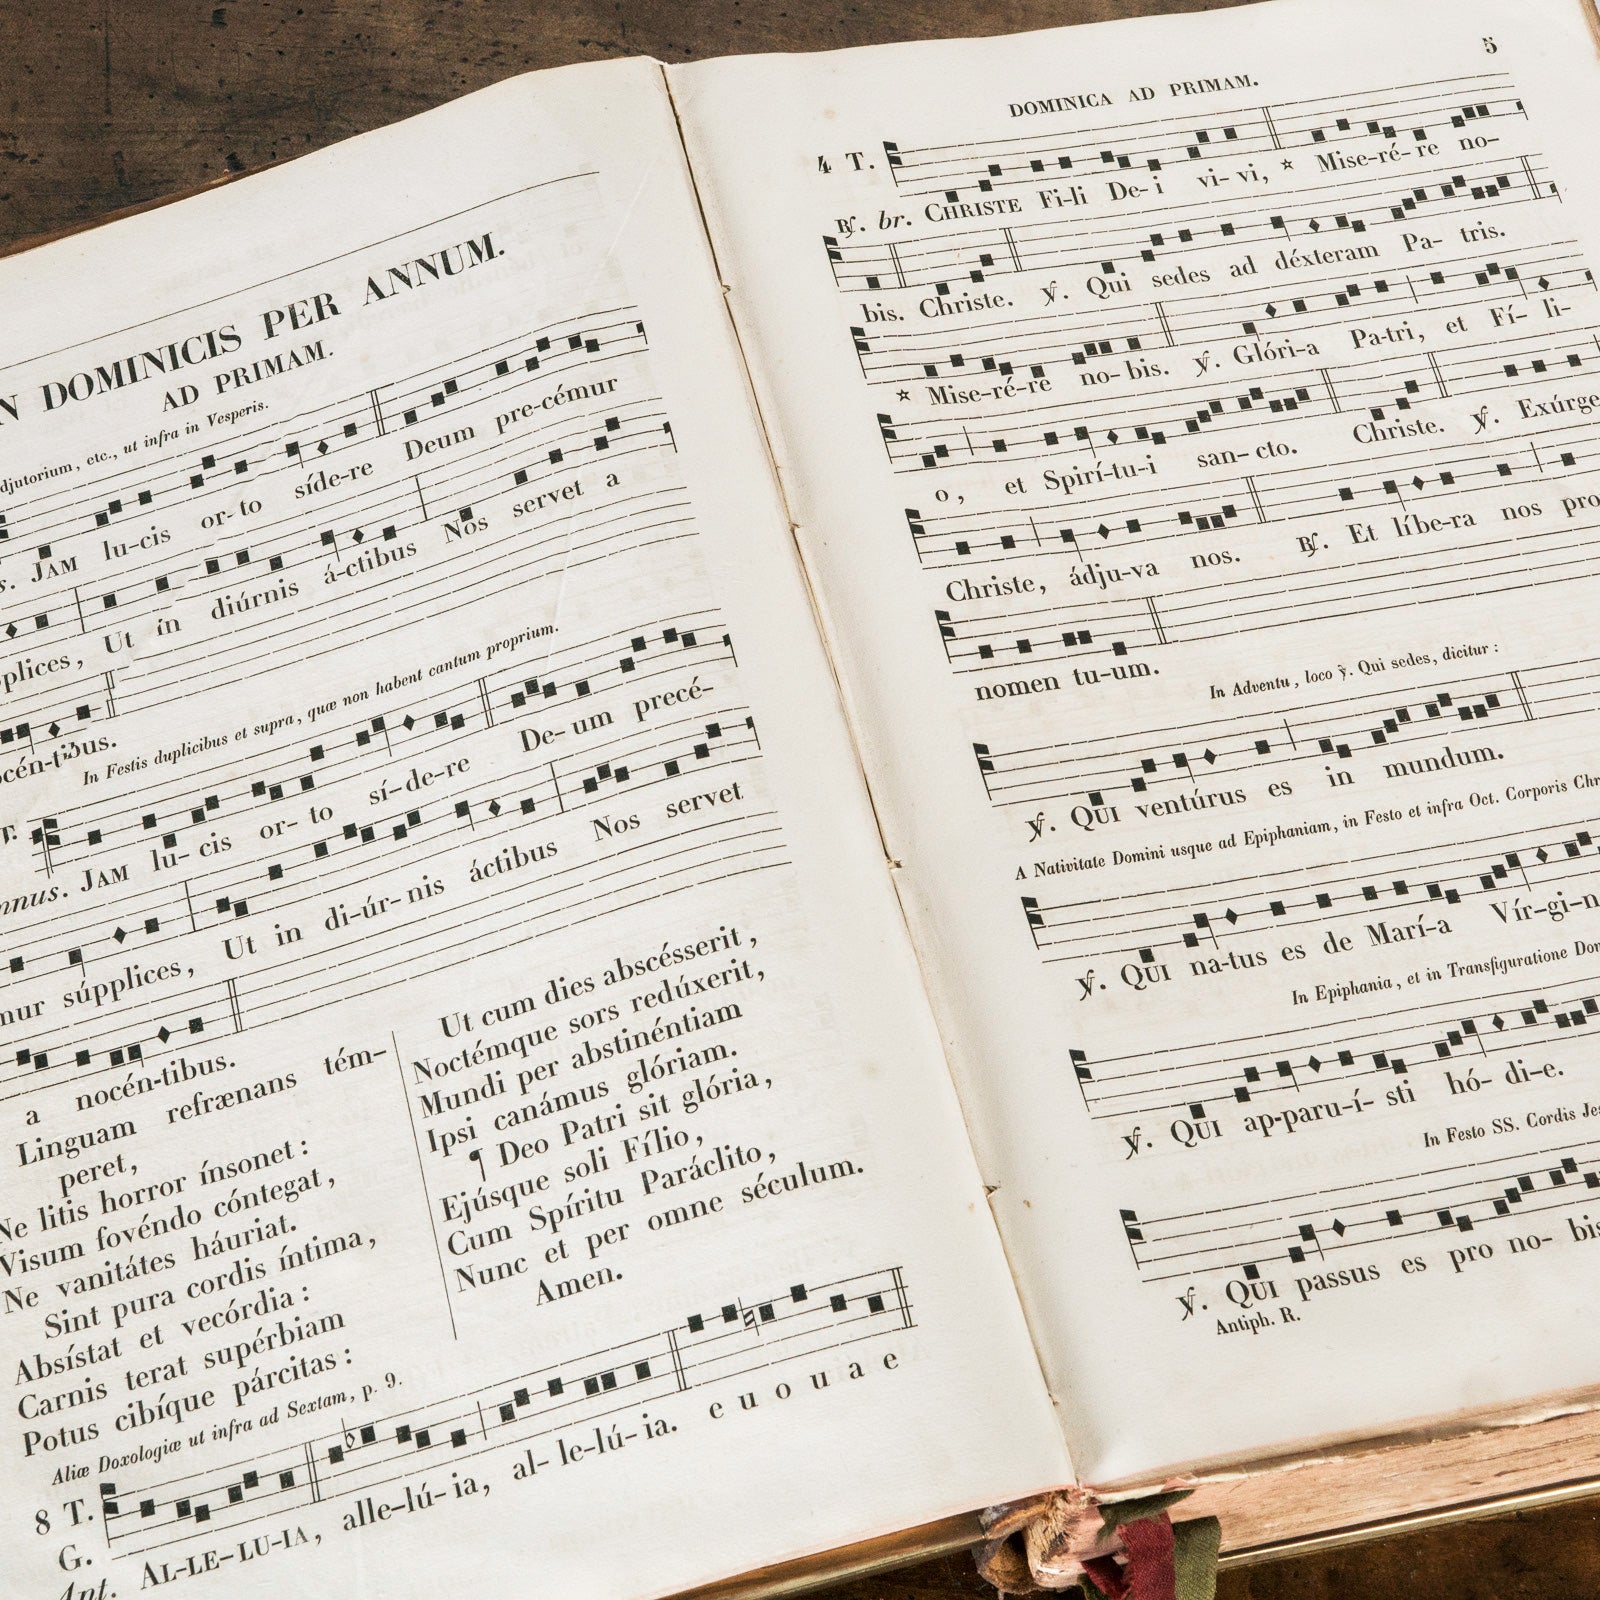 N DOMINICIS PER ANNUM.
AD PRIMAM.
djutorium, etc., ut infra in Vesperis.
s. JAM lu-cis or-to síde-re Deum pre-cémur
pplices, Ut in diúrnis á-ctibus Nos servet a
océn-tibus.
In Festis duplicibus et supra, quæ non habent cantum proprium.
T.
mnus. JAM lu-cis or-to sí-de-re De-um precé-
mur súpplices, Ut in di-úr-nis áctibus Nos servet
a nocén-tibus.
Linguam refrænans tém-
peret,
Ne litis horror ínsonet :
Visum fovéndo cóntegat,
Ne vanitátes háuriat.
Sint pura cordis íntima,
Absístat et vecórdia :
Carnis terat supérbiam
Potus cibíque párcitas :
Ut cum dies abscésserit,
Noctémque sors redúxerit,
Mundi per abstinéntiam
Ipsi canámus glóriam.
¶ Deo Patri sit glória,
Ejúsque soli Fílio,
Cum Spíritu Paráclito,
Nunc et per omne séculum.
Amen.
Aliæ Doxologiæ ut infra ad Sextam, p. 9.
8 T.
G.
Ant. AL-LE-LU-IA, alle-lú-ia, al-le-lú-ia. e u o u a e
5
DOMINICA AD PRIMAM.
4 T.
℟. br. CHRISTE Fi-li De-i vi-vi, * Mise-ré-re no-
bis. Christe. ℣. Qui sedes ad déxteram Pa-tris.
* Mise-ré-re no-bis. ℣. Glóri-a Pa-tri, et Fí-li-
o, et Spirí-tu-i san-cto. Christe. ℣. Exúrge
Christe, ádju-va nos. ℟. Et líbe-ra nos pro
nomen tu-um.
In Adventu, loco ℣. Qui sedes, dicitur :
℣. QUI ventúrus es in mundum.
A Nativitate Domini usque ad Epiphaniam, in Festo et infra Oct. Corporis Chr
℣. QUI na-tus es de Marí-a Vír-gi-n
In Epiphania, et in Transfiguratione Dom
℣. QUI ap-paru-í-sti hó-di-e.
In Festo SS. Cordis Jes
℣. QUI passus es pro no-bis
Antiph. R.